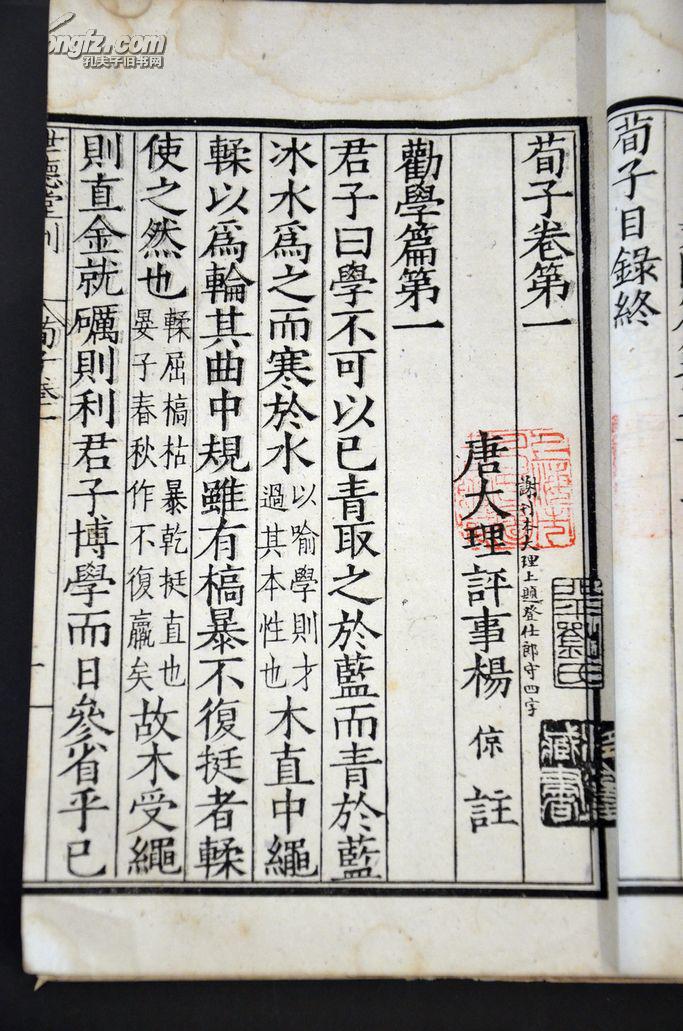 荀子目錄終
荀子卷第一
謝刊本大理上題登仕郎守四字
唐大理評事楊倞註
勸學篇第一
君子曰學不可以已青取之於藍而青於藍
冰水爲之而寒於水以喻學則才過其本性也木直中繩
輮以爲輪其曲中規雖有槁暴不復挺者輮
使之然也輮屈槁枯暴乾挺直也晏子春秋作不復贏矣故木受繩
則直金就礪則利君子博學而日參省乎已
世德堂刊
荀子卷一
藏書
kongfz.com
孔夫子旧书网